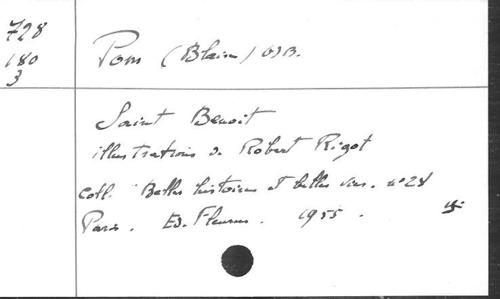 728
180
3
Pons (Blaise) OSB.
Saint Benoit
illustrations de Robert Rigot
coll. Belles histoires et belles vies. n°28
Paris. Ed. Fleurus. 1955.